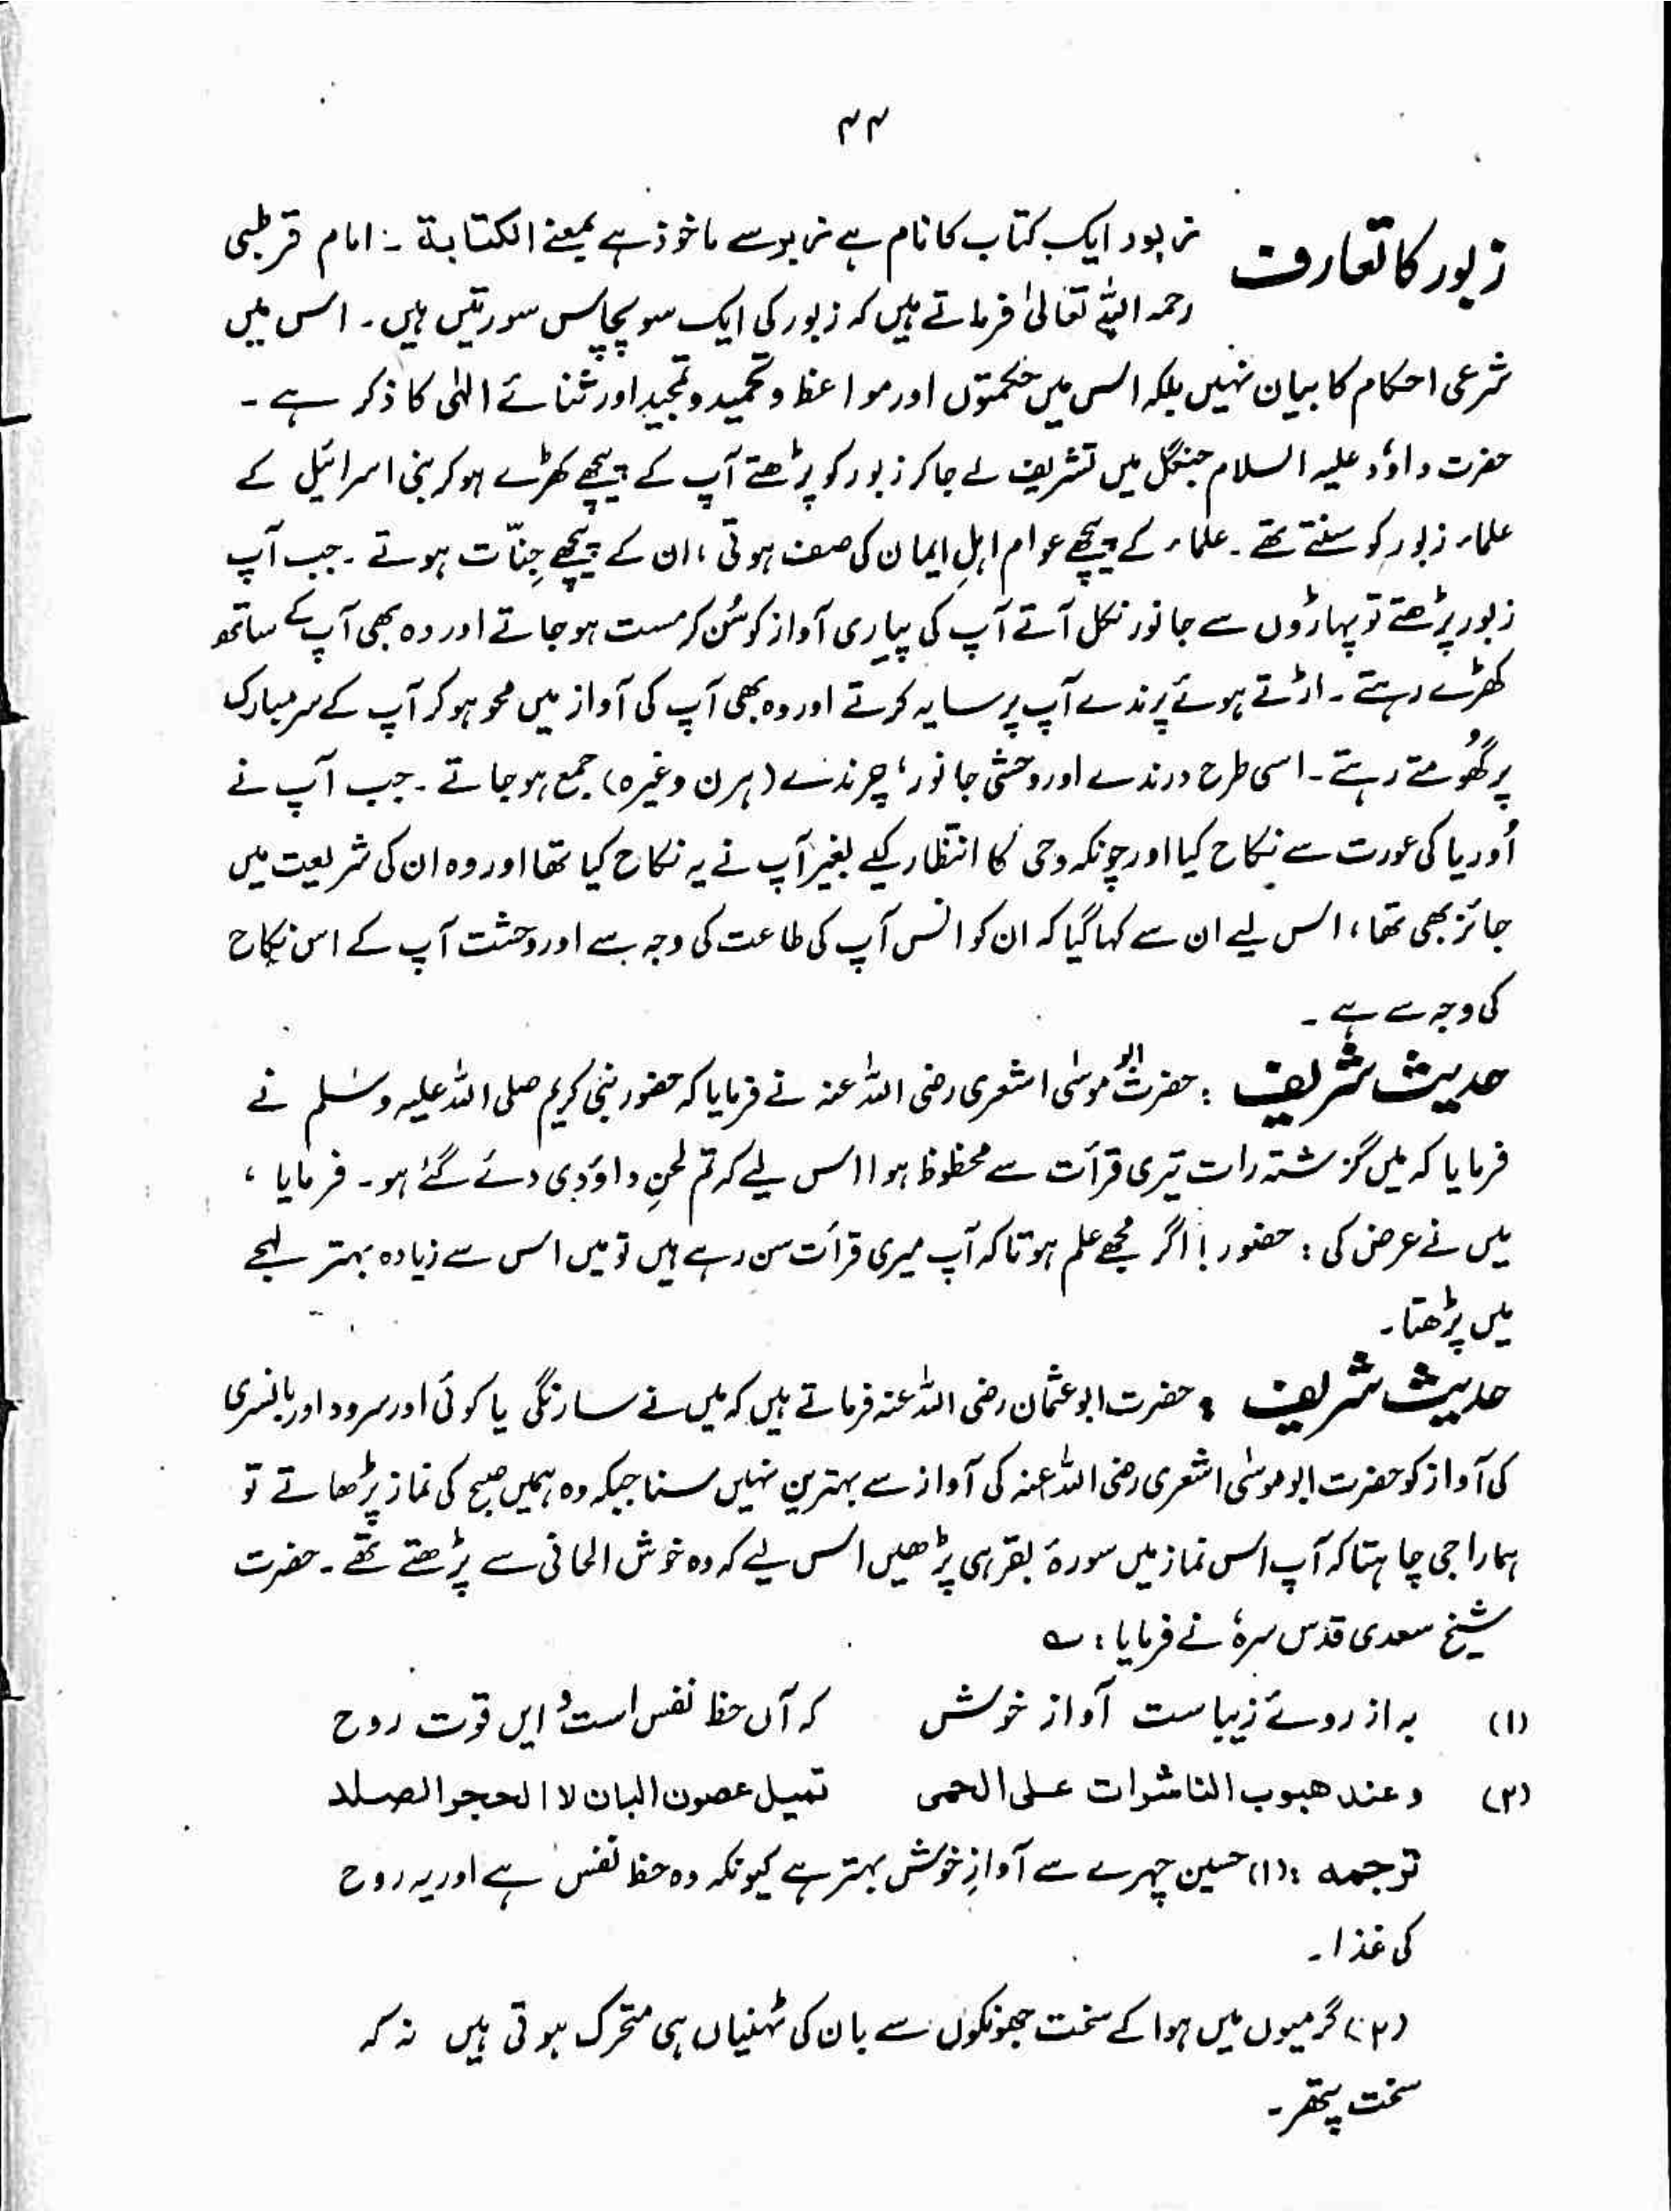 ۴۴
زبور کا تعارف
زبور ایک کتاب کا نام ہے زبر سے ماخوذ ہے بمعنے الکتابۃ ۔ امام قرطبی
رحمہ اللہ تعالیٰ فرماتے ہیں کہ زبور کی ایک سو پچاس سورتیں ہیں۔ اس میں
شرعی احکام کا بیان نہیں بلکہ اس میں حکمتوں اور مواعظ و تحمید و تمجید اور ثنائے الٰہی کا ذکر ہے ۔
حضرت داؤد علیہ السلام جنگل میں تشریف لے جا کر زبور کو پڑھتے آپ کے پیچھے کھڑے ہو کر بنی اسرائیل کے
علماء زبور کو سنتے تھے ۔ علماء کے پیچھے عوام اہلِ ایمان کی صف ہوتی ، ان کے پیچھے جِنّات ہوتے ۔ جب آپ
زبور پڑھتے تو پہاڑوں سے جانور نکل آتے آپ کی پیاری آواز کو سُن کر مست ہو جاتے اور وہ بھی آپ کے ساتھ
کھڑے رہتے ۔ اڑتے ہوئے پرندے آپ پر سایہ کرتے اور وہ بھی آپ کی آواز میں محو ہو کر آپ کے سر مبارک
پر گھُومتے رہتے ۔ اسی طرح درندے اور وحشی جانور ، چرندے (ہرن وغیرہ) جمع ہو جاتے ۔ جب آپ نے
اُوریا کی عورت سے نکاح کیا اور چونکہ وحی کا انتظار کیے بغیر آپ نے یہ نکاح کیا تھا اور وہ ان کی شریعت میں
جائز بھی تھا ، اس لیے ان سے کہا گیا کہ ان کو انس آپ کی طاعت کی وجہ سے اور وحشت آپ کے اس نکاح
کی وجہ سے ہے ۔
حدیث شریف : حضرت ابو موسٰی اشعری رضی اللہ عنہ نے فرمایا کہ حضور نبی کریم صلی اللہ علیہ وسلم نے
فرمایا کہ میں گزشتہ رات تیری قرأت سے محظوظ ہوا اس لیے کہ تم لحنِ داؤدی دئے گئے ہو ۔ فرمایا ،
میں نے عرض کی : حضور ! اگر مجھے علم ہوتا کہ آپ میری قرأت سن رہے ہیں تو میں اس سے زیادہ بہتر لہجے
میں پڑھتا ۔
حدیث شریف : حضرت ابو عثمان رضی اللہ عنہ فرماتے ہیں کہ میں نے سارنگی یا کوئی اور سرود اور بانسری
کی آواز کو حضرت ابو موسٰی اشعری رضی اللہ عنہ کی آواز سے بہترین نہیں سنا جبکہ وہ ہمیں صبح کی نماز پڑھاتے تو
ہمارا جی چاہتا کہ آپ اس نماز میں سورۂ بقر ہی پڑھیں اس لیے کہ وہ خوش الحانی سے پڑھتے تھے ۔ حضرت
شیخ سعدی قدس سرہٗ نے فرمایا : ؎
(۱) بہ از روئے زیباست آواز خوش کہ آں حظ نفس است و ایں قوت روح
(۲) وعند هبوب الناشرات على الحمى تميل غصون البان لا الحجر الصلد
ترجمہ : (۱) حسین چہرے سے آوازِ خوش بہتر ہے کیونکہ وہ حظ نفس ہے اور یہ روح
کی غذا ۔
(۲) گرمیوں میں ہوا کے سخت جھونکوں سے بان کی ٹہنیاں ہی متحرک ہوتی ہیں نہ کہ
سخت پتھر ۔